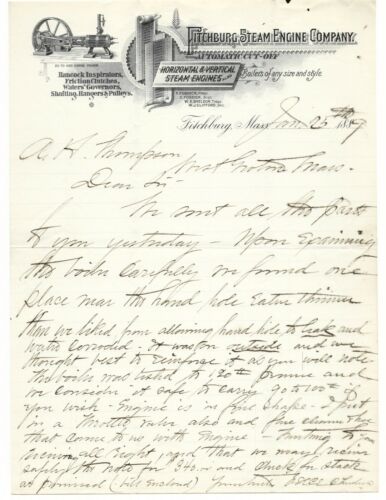 FITCHBURG STEAM ENGINE COMPANY.
AUTOMATIC CUT-OFF
HORIZONTAL & VERTICAL
STEAM ENGINES
Boilers of any size and style.
Hancock Inspirators,
Friction Clutches,
Waters' Governors,
Shafting, Hangers & Pulleys.
Fitchburg, Mass Jan. 25th 188
A. H. Thompson
Dear Sir
We sent all the parts
to you yesterday - Upon Examining
the boiler Carefully we found one
place near the hand hole Eaten thinner
than we liked from allowing hand hole to leak and
water corroded - It was on outside and we
thought best to reinforce it as you will note
The boiler was tested to 120 and
we consider it safe to carry 90 to 100 if
you wish - Engine is in fine shape - I put
in a throttle valve also and
that came to us with Engine - trusting to
receive all right, and that we may receive
safely the note for 340. and check for
as promised (bill Enclosed)